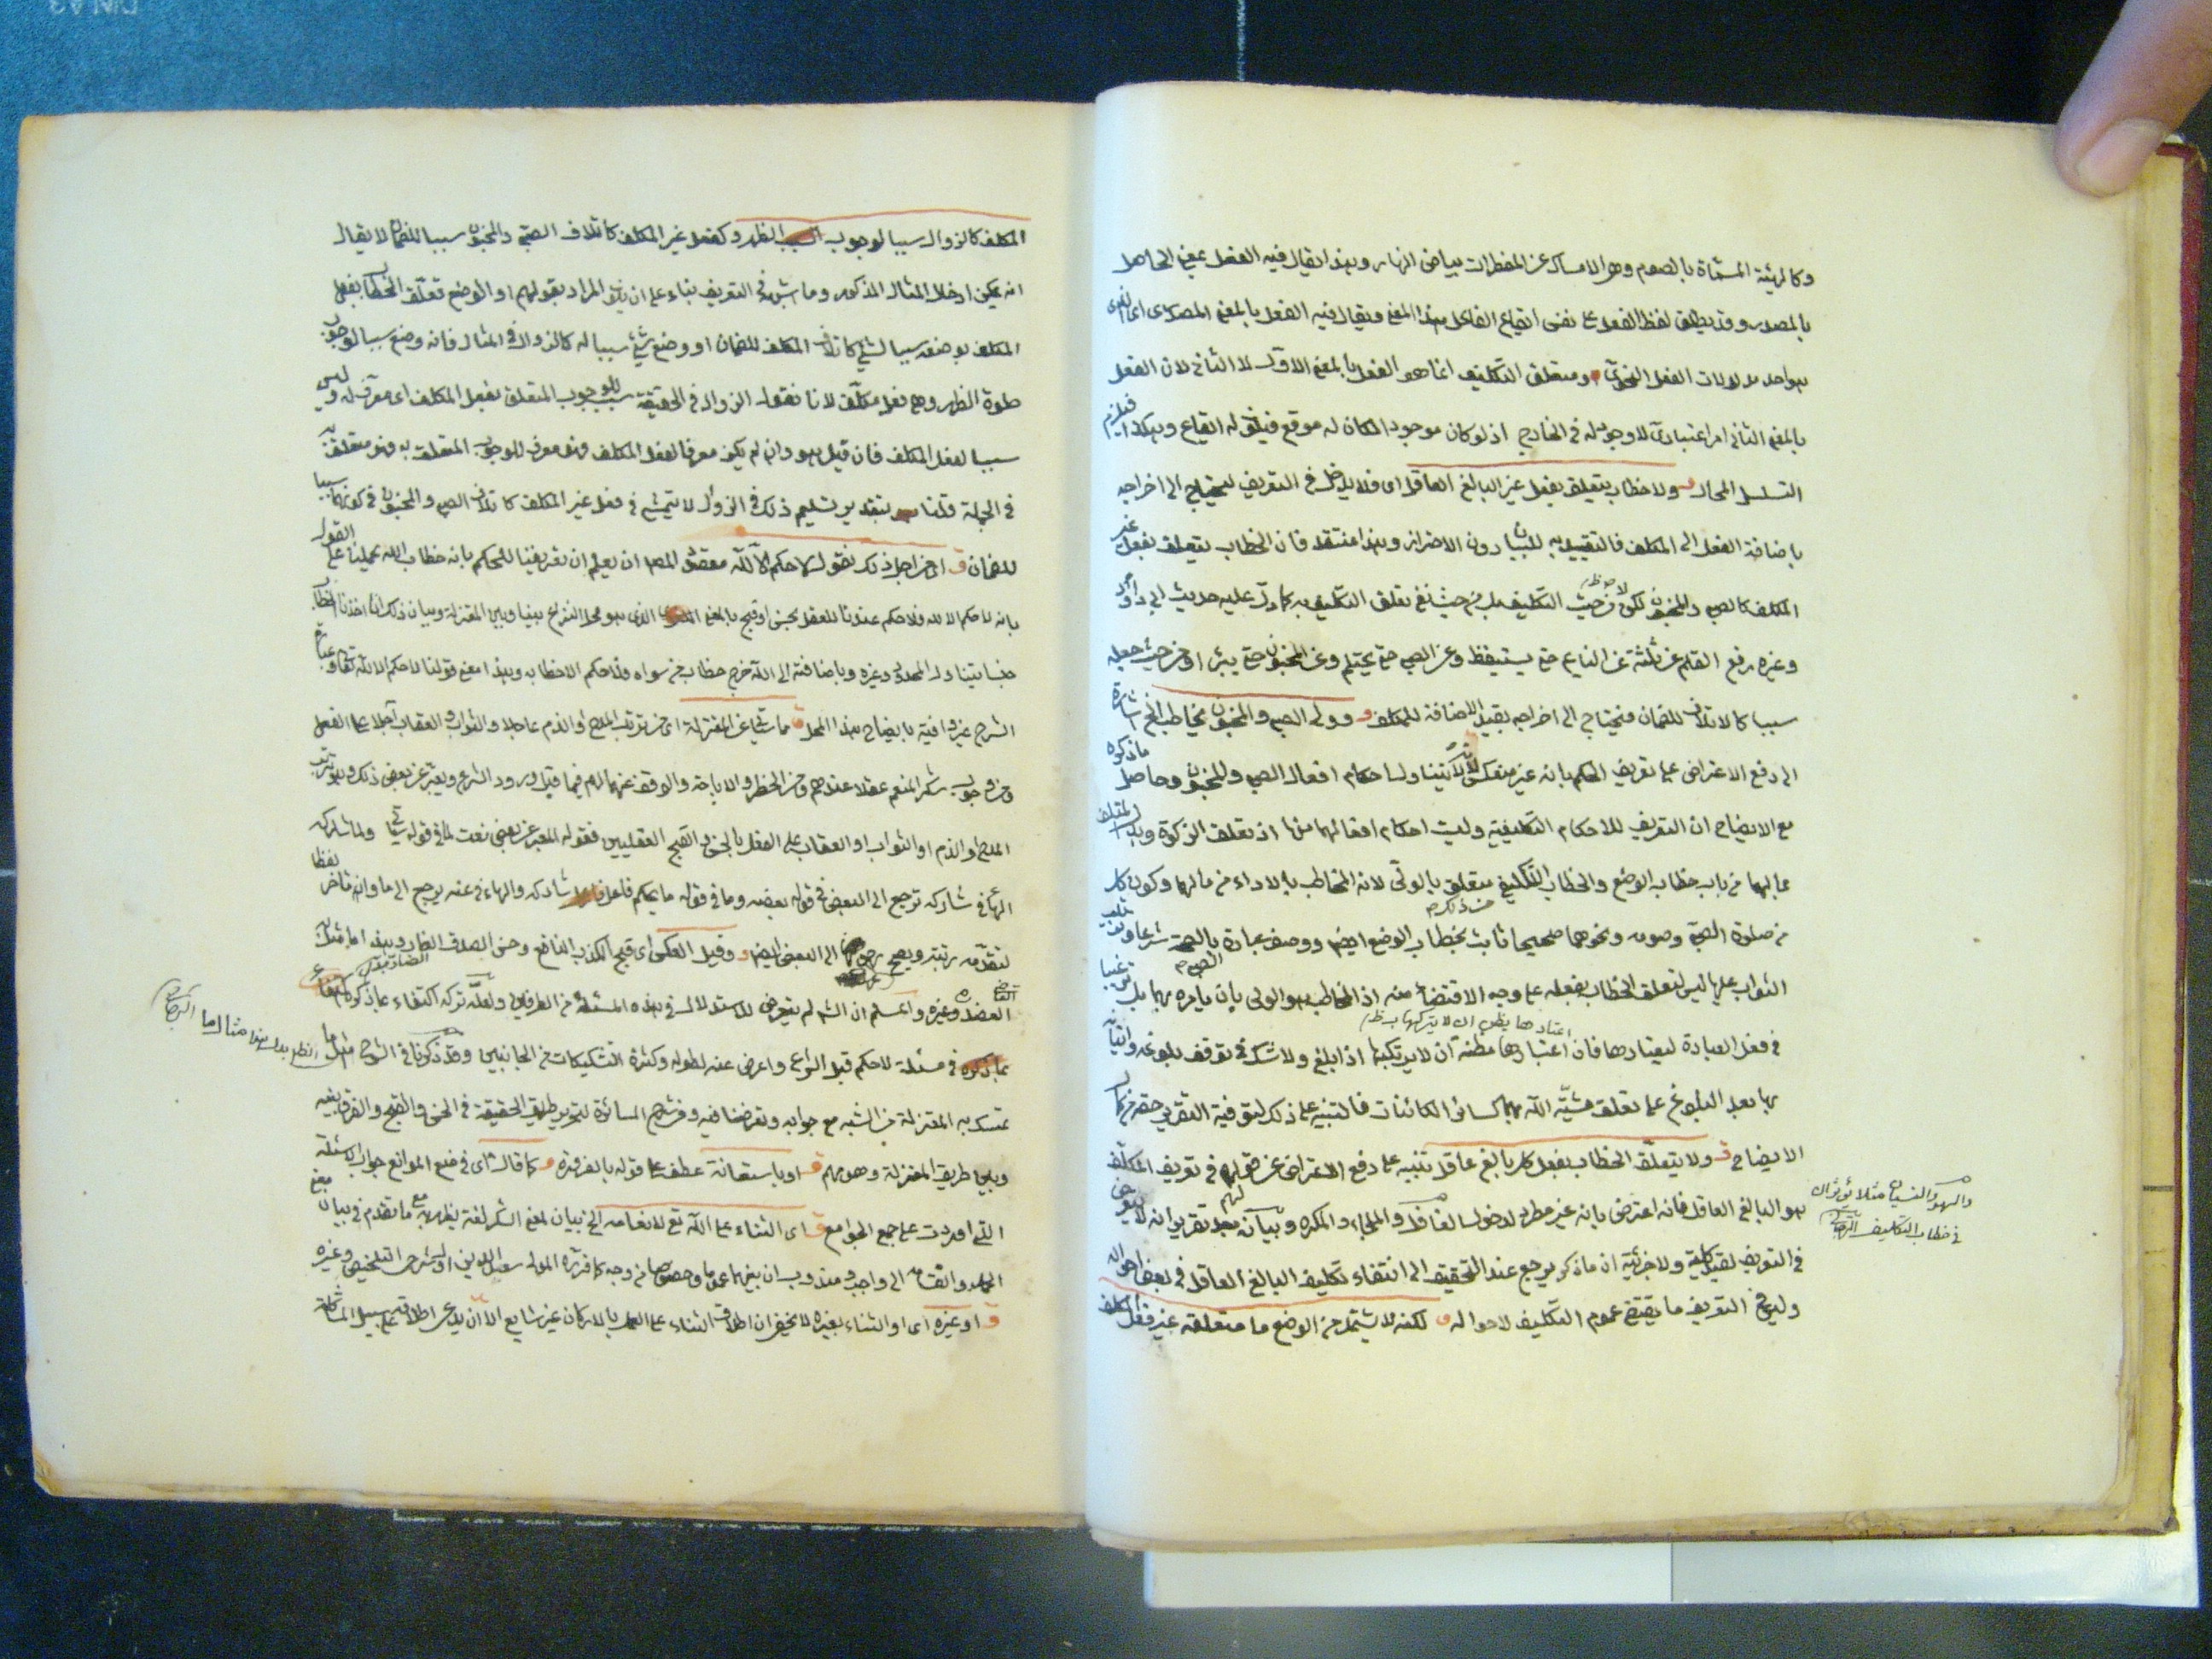 وكالهيئة المسماة بالصوم وهى الامساك عن المفطرات بياض النهار وهذا يقال فيه الفعل بمعنى الحاصل
بالمصدر وقد يطلق لفظ الفعل على نفس ايقاع الفاعل هذا المعنى ويقال فيه الفعل بالمعنى المصدرى اى الذى
هو احد مدلولات الفعل النحوى ومتعلق التكليف انما هو الفعل بالمعنى الاول لا الثانى لان الفعل
بالمعنى الثانى امر اعتبارى لا وجود له فى الخارج اذ لو كان موجودا لكان له موقع فيكون له ايقاع وهكذا فيلزم
التسلسل المحال ق ولا خطاب يتعلق بفعل غير البالغ العاقل اى فلا يدخل فى التعريف ليحتاج الى اخراجه
باضافة الفعل الى المكلف فالتقييد به للبيان دون الاحتراز وهذا منتقد فان الخطاب يتعلق بفعل غير
المكلف كالصبى والمجنون لكن لا من حيث التكليف بل من حيث نفى تعلق التكليف به كما دل عليه حديث ابى داود
وغيره رفع القلم عن ثلثة عن النايم حتى يستيقظ وعن الصبى حتى يحتلم وعن المجنون حتى يبرأ او من حيث جعله
سببا كالاتلاف للضمان فيحتاج الى اخراجه بقيد الاضافة للمكلف ق وولى الصبى والمجنون مخاطب الخ اشارة
الى دفع الاعتراض على تعريف الحكم بانه غير منعكس لانه لا يتناول احكام افعال الصبى والمجنون وحاصل ما ذكره
مع الايضاح ان التعريف للاحكام التكليفية وليست احكام افعالهما منها اذ تعلق الزكوة وبدل المتلف
بمالهما من باب خطاب الوضع والخطاب التكليفى متعلق بالولى لانه المخاطب بالاداء من مالهما وكون كل
من صلوة الصبى وصومه ونحوهما صحيحا ثابت بخطاب الوضع ايضا ووصف عبادة بالصحة شرعا وترتب
الثواب عليها ليس لتعلق الخطاب بفعله على وجه الاقتضاء منه اذ المخاطب هو الولى بان يامره بهما بل ترغيبا
فى فعل العبادة ليعتادها فان اعتيادها مظنة ان لا يتركها اذا بلغ ولا شك فى توقف بلوغه واتيانه
بها بعد البلوغ على تعلق مشية الله بهما كسائر الكائنات فالتنبيه على ذلك لتوفية التقرير حقه من كمال
الايضاح ق ولا يتعلق الخطاب بفعل كل بالغ عاقل تنبيه على دفع الاعتراض عن قولهم فى تعريف المكلف
هو البالغ العاقل فانه اعترض بانه غير مطرد لدخول الغافل والملجاء والمكره وبيانه بعد تقرير انه لا تعرض
فى التعريف لقيد كلية ولا جزئية ان ما ذكر يرجع عند التحقيق الى انتفاء تكليف البالغ العاقل فى بعض احواله
وليس فى التعريف ما يقتضى عموم التكليف لاحواله ق لكنه لا يشتمل من الوضع ما متعلقه غير فعل المكلف
والسهو والنسيان مثلا
فى خطاب التكليف
المكلف كالزوال سببا لوجوب الظهر وكفعل غير المكلف كاتلاف الصبى والمجنون سببا للضمان لا يقال
انه يمكن ادخال المثال المذكور وما اشبهه فى التعريف بناء على ان يكون المراد بقولهم او الوضع تعلق الخطاب بفعل
المكلف بوضعه سببا لشئ كاتلاف المكلف للضمان او وضع شئ سببا له كالزوال فى المثال فانه وضع سببا لوجوب
صلوة الظهر وهى فعل مكلف لانا نقول الزوال فى الحقيقة سبب للوجوب المتعلق بفعل المكلف اى معرف له وليس
سببا لفعل المكلف فان قيل هو وان لم يكن معرفا لفعل المكلف فهو معرف للوجوب المتعلق به فهو متعلق به
فى الجملة قلنا بتقدير تسليم ذلك فى الزوال لا يتمشى فى فعل غير المكلف كاتلاف الصبى والمجنون فى كونهما سببا
للضمان ق اى من اجل ذلك نقول لا حكم الا لله مقصود المص ان يعلم ان تعريفنا للحكم بانه خطاب الله يحملنا على القول
بانه لا حكم الا لله فلا حكم عندنا للعقل بحسن او قبح بالمعنى الذى هو محل النزاع بيننا وبين المعتزلة وبيان ذلك انا اخذنا الخطاب
جنسا يتناول المحدود وغيره وباضافته الى الله خرج خطاب من سواه فلا حكم الا خطابه وهذا معنى قولنا لا حكم الا لله تعالى وعبارة
الشرح غير وافية بايضاح هذا المحل ق مما سيأتى عن المعتزلة اى من ترتب المدح والذم عاجلا والثواب والعقاب آجلا على الفعل
ومن وجوب شكر المنعم عقلا عندهم ومن الحظر والاباحة والوقف عنهما لهم فيما قبل ورود الشرع ويعبر عن بعض ذلك وهو ترتب
المدح او الذم او الثواب او العقاب على الفعل بالحسن والقبح العقليين فقوله المعبر عن بعض نعت لما فى قوله سياتى ولما شاركه
الهاء فى شاركه ترجع الى البعض فى قوله بعضه وما فى قوله ما يحكم فاعل شاركه والهاء فى عنه يرجع الى ما وان تاخر لفظا
لتقدمه رتبة ويصح رجوعها الى البعض ايضا ق وقيل العكس اى قبح الكذب النافع وحسن الصدق الضار وهذا مما مثل به
العضد وغيره واعلم ان الشارح لم يتعرض للاستدلال فى هذه المسئلة من الطرفين ولعله تركه اكتفاء بما ذكره
فى مسئلة لا حكم قبل الشرع واعرض عنه لطوله وكثرة التشكيكات من الجانبين وقد ذكرنا فى الشرح مثل ما
تمسك به المعتزلة من الشبه مع جوابه وتعرضنا فيه وفى شرح المسائرة لتحرير طريق الحقيقة فى الحسن والقبح والفرق بينه
وبين طريق المعتزلة وهو مهم ق او باستعانة عطف على قوله بالضرورة ق كما قال اى فى منع الموانع جواب الاسئلة
التى اوردت على جمع الجوامع ق اى الثناء على الله تع لانعامه الخ بيان لمعنى الشكر لغة يظهر به مع ما تقدم فى بيان معنى
الحمد وانقسامه الى واجب ومندوب ان بينهما عموما وخصوصا من وجه كما قرره المولى سعد الدين اول شرح التلخيص وغيره
ق او غيره اى او الثناء بغيره لا يخفى ان اطلاق الثناء على العمل بالاركان غير شايع الا ان يدعى اطلاقه على سبيل المشاكلة